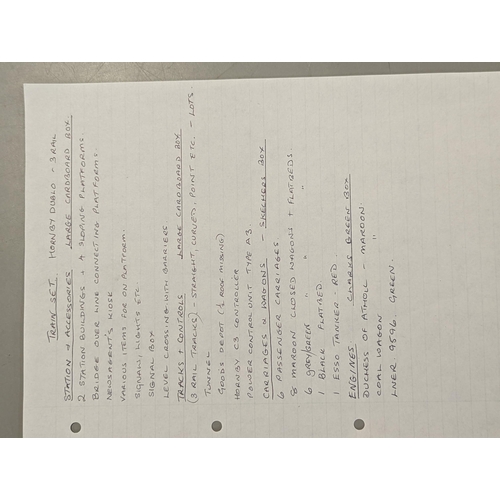 TRAIN SET. HORNBY DUBLO - 3 RAIL
STATION + ACCESSORIES LARGE CARDBOARD BOX.
2 STATION BUILDINGS + 4 SLOPING PLATFORMS.
BRIDGE OVER LINE CONNECTING PLATFORMS.
NEWSAGENT'S KIOSK
VARIOUS ITEMS FOR ON PLATFORM.
SIGNALS, LIGHTS ETC
SIGNAL BOX
LEVEL CROSSING WITH BARRIERS
TRACKS + CONTROLS LARGE CARDBOARD BOX
(3 RAIL TRACKS) - STRAIGHT, CURVED, POINT ETC. - LOTS.
TUNNEL
GOODS DEPOT (½ ROOF MISSING)
HORNBY C3 CONTROLLER
POWER CONTROL UNIT TYPE A3
CARRIAGES & WAGONS - SKECHERS BOX
6 PASSENGER CARRIAGES
8 MAROON CLOSED WAGONS + FLATBEDS.
6 GREY/GREEN " " "
1 BLACK FLATBED
1 ESSO TANKER - RED.
ENGINES GREEN BOX
DUCHESS OF ATHOLL - MAROON.
COAL WAGON "
LNER 9596 GREEN.